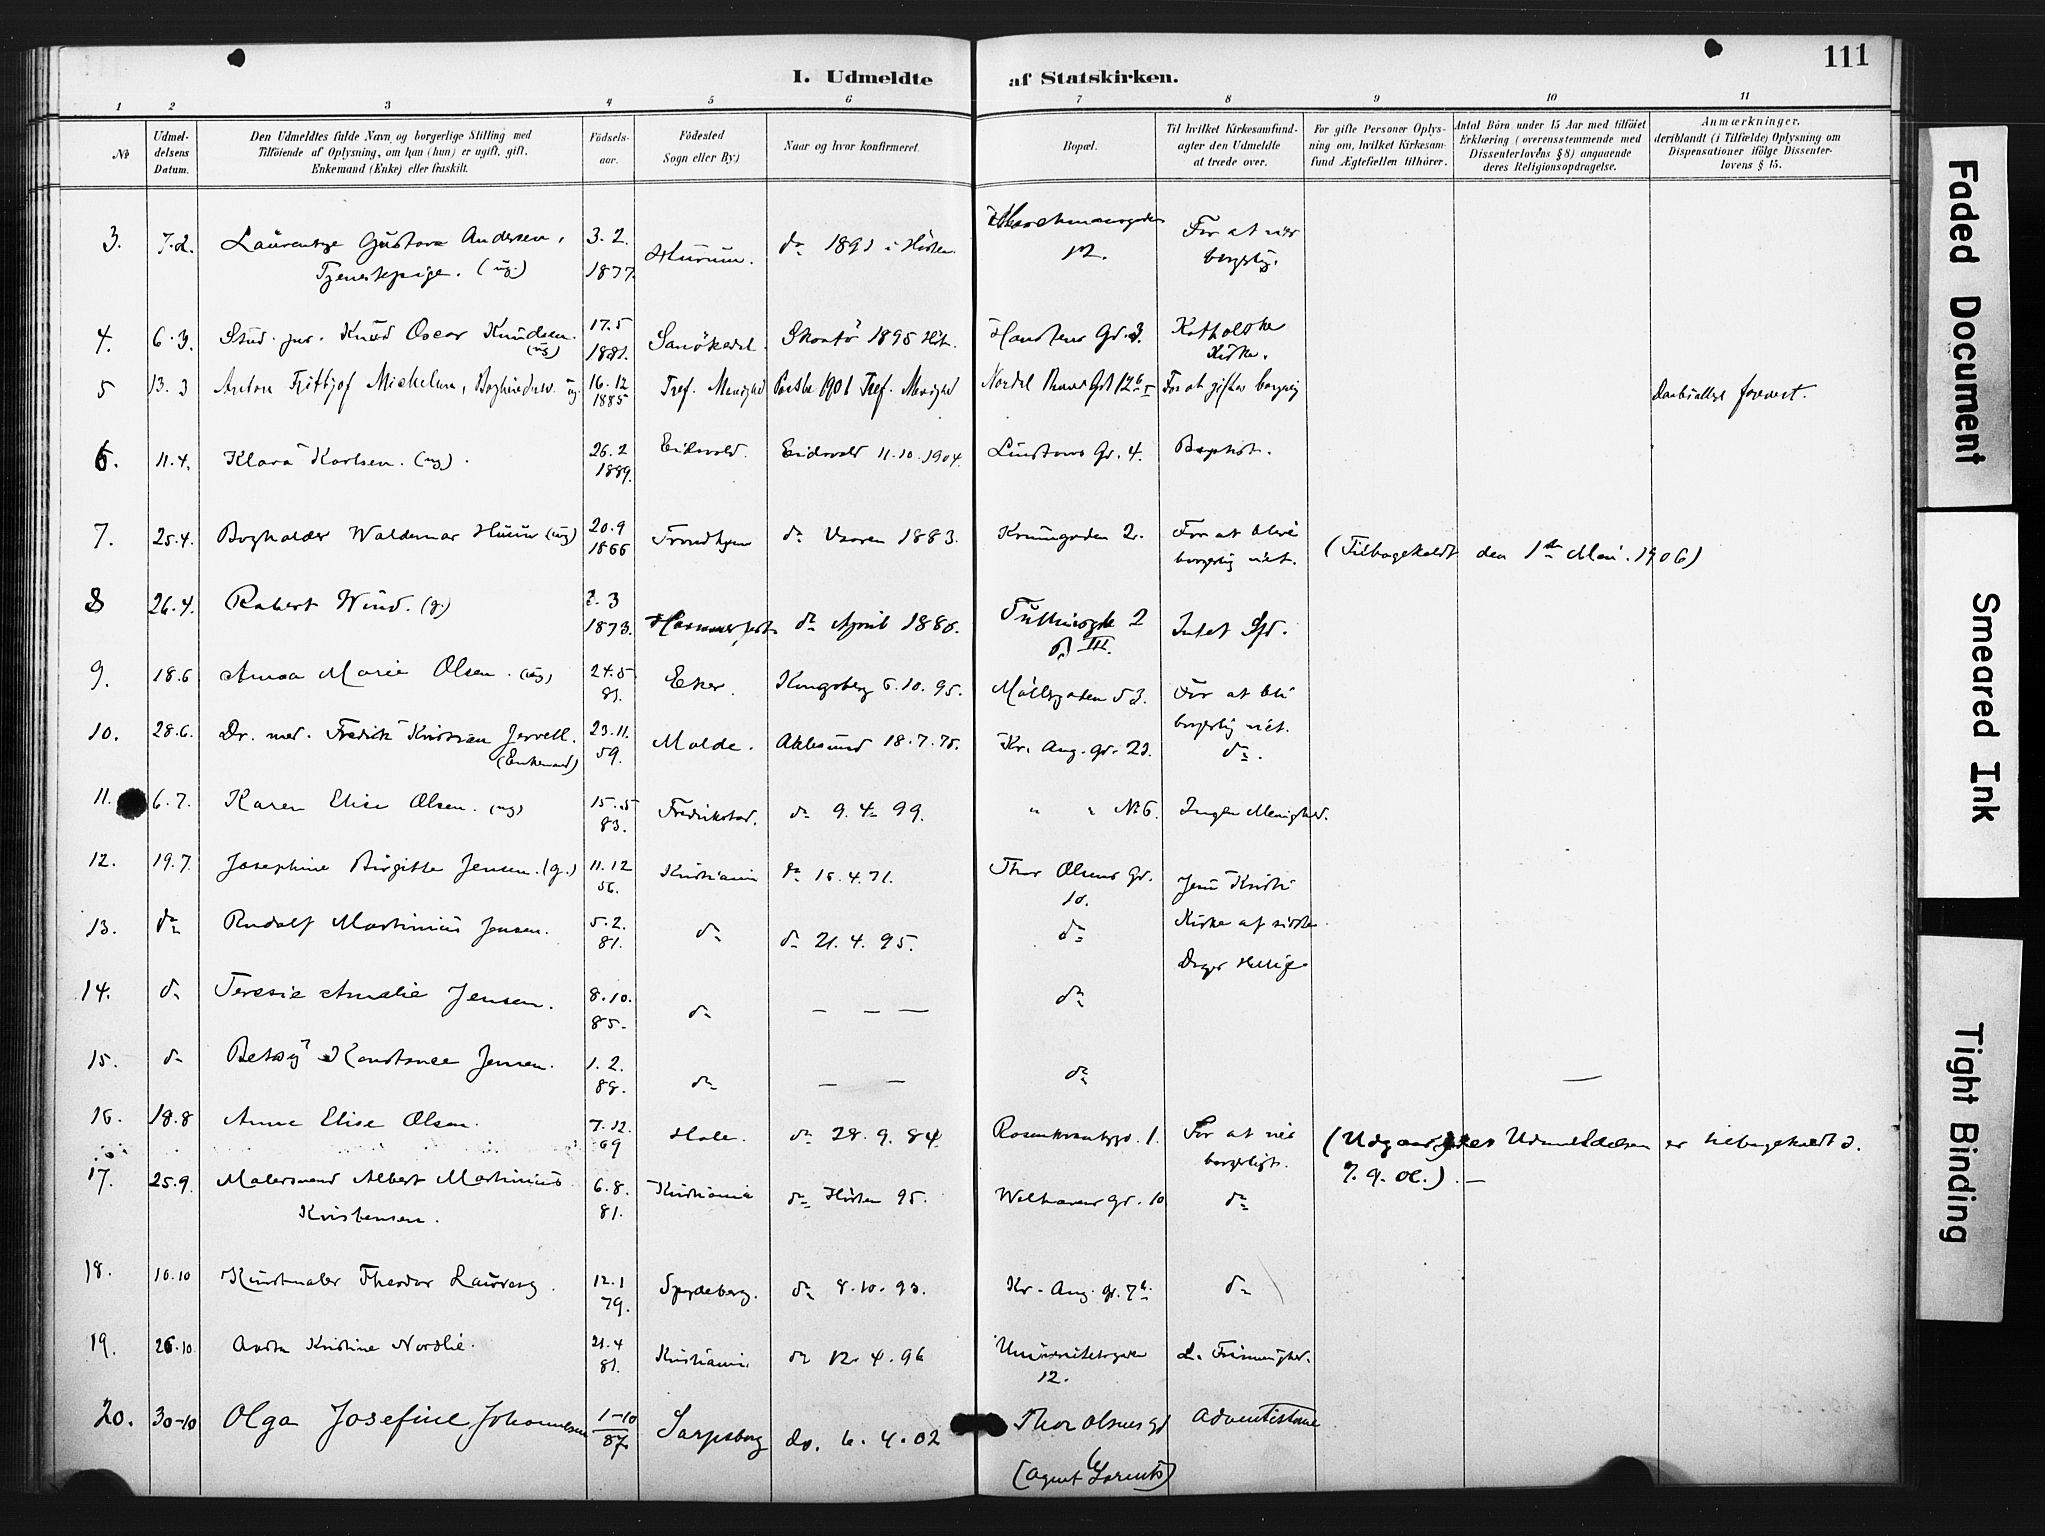 111
I. Udmeldte af Statskirken.
1 2 3 4 5 6 7 8 9 10 11
No
Udmel-
delsens
Datum.
Den Udmeldtes fulde Navn og borgerlige Stilling med
Tilföiende af Oplysning, om han (hun) er ugift, gift,
Enkemand (Enke) eller fraskilt.
Födsels-
aar.
Födested
Sogn eller By.)
Naar og hvor konfirmeret.
Bopæl.
Til hvilket Kirkesamfund-
agter den Udmeldte
at træde over.
For gifte Personer Oplys-
ning om, hvilket Kirkesam-
fund Ægtefællen tilhörer.
Antal Börn under 15 Aar med tilföiet
Erklæring (overensstemmende med
Dissenterlovens § 8) angaaende
deres Religionsopdragelse.
Anmærkninger,
deriblandt (i Tilfælde) Oplysning om
Dispensationer ifölge Dissenter-
lovens § 15.
3. 7.2. Laurentze Gustava Andersen, 3.2. Hurum. do 1891 i Hösten
Tjenestepige. (ug.) 1877. 12. For at vies
borgerlig.
4. 6.3. Stud. jur. Knud Oscar Knudsen. 17.5 Sanökedal. Skaatö 1895 Höst. Gd. 3. Katholske
(ug) 1881. Kirke.
5 13.3 Anton Frithjof Michelsen, ug. 16.12 Tref. Menighed Paaske 1901 Tref. Menighed For at giftes borgerlig
1885
6. 11.4. Klara Karlsen. (ug). 26.2 Eidsvold. Eidsvold 11.10.1904. Lindstows Gd. 4. Baptist.
1889.
7. 25.4. Bogholder Waldemar Huun (ug) 20.9 Trondhjem do Vaaren 1883. Krumgaden 2. For at blive
1866 borgerlig viet. (Tilbagekaldt den 1ste Mai. 1906)
8 26.4. Robert Wind. (g.) 2.3 Hammerfest. do April 1888. Tullinsgde 2
1873. III. Intet Sfd.
9. 18.6 Anna Marie Olsen. (ug) 24.5 Eker. Kongsberg 6.10.95. Möllegaten 53. For at bli
81. borgerlig viet.
10. 28.6. Dr. med. Fredrik Kristian Jervell. 23.11. Molde. Aalesund 18.7.75. Kr. Aug. gd. 23. do.
(Enkemand) 59.
11. 6.7. Karen Elise Olsen. (ug) 15.5 Fredrikstad. do 9.4.99. " " No 6. Ingen Menighed.
83.
12. 19.7 Josephine Birgitte Jensen. (g.) 11.12 Kristiania do 16.4.71. Thor Olsens Gd. Jesu Kristi
56. 10.
13. do Rudolf Martinius Jensen. 5.2. do do 21.4.95. do Kirke af sidste
81. Dages Hellige
14. do Teresie Amalie Jensen. 8.10. do — — — do
85.
15. do Betsy Konstance Jensen. 1.2. do — — do —
88.
16. 18.8 Anne Elise Olsen. 7.12. Hole. do 28.9.84 Rosenkrantzgd. 1. For at vies (Udgaar, Udmeldelsen er tilbagekaldt d.
69 borgerligt. 7.9.06.). —
17. 25.9. Malersvend Albert Martinius 6.8. Kristiania do Hösten 95. Welhavens Gd. 10 do
Kristensen. 81.
18. 16.10 Kunstmaler Theodor Laureng. 12.1 Spydeberg. do 8.10.93. Kr. Aug. gd. 7b. do
79.
19. 26.10 Kristine Nordlie. 21.4 Kristiania. do 12.4.96 Universitetsgaden
81. 12. L. Frimenighed.
20. 30-10 Olga Josefine Johannesen 1-10 Sarpsborg do. 6.4.02 Thor Olsens gd Adventisterne
87. (agent Lorentz)
Faded Document
Smeared Ink
Tight Binding